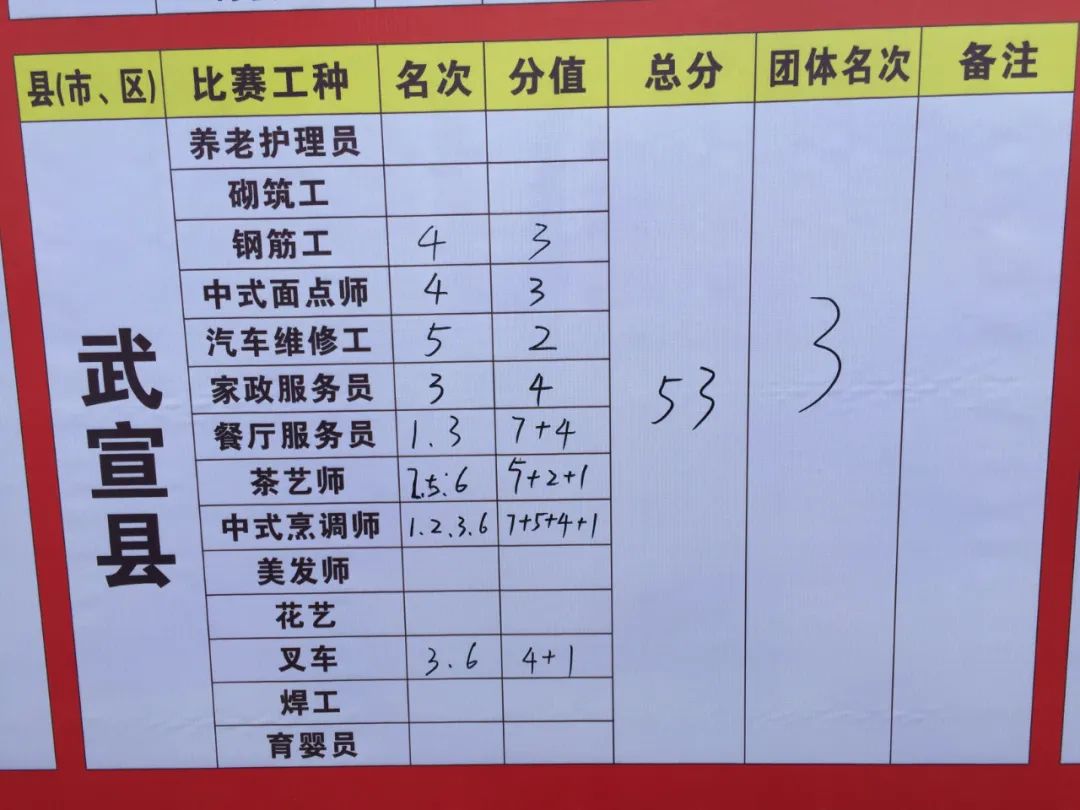 县(市、区) 比赛工种 名次 分值 总分 团体名次 备注
武宣县
养老护理员
砌筑工
钢筋工 4 3
中式面点师 4 3
汽车维修工 5 2
家政服务员 3 4 53 3
餐厅服务员 1.3 7+4
茶艺师 2.5.6 5+2+1
中式烹调师 1.2.3.6 7+5+4+1
美发师
花艺
叉车 3.6 4+1
焊工
育婴员